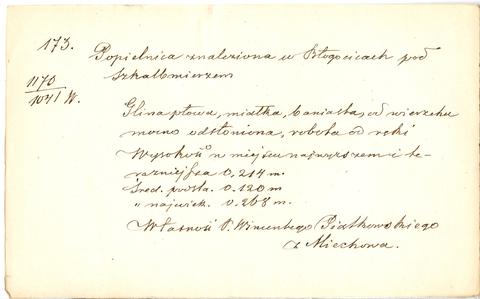 173.
Popielnica znaleziona w Błogocicach pod
Szkalbmierzem
1170
1041 W.
Glina płowa, miałka, baniasta, od wierzchu
mocno odsłoniona, robota od ręki
Wysokość w miejscu najwyższem i te-
raźniejsza 0.214 m.
Śred. podsta. 0.120 m
" najwięk. 0.268 m.
Własność P. Wincentego Piątkowskiego
z Miechowa.